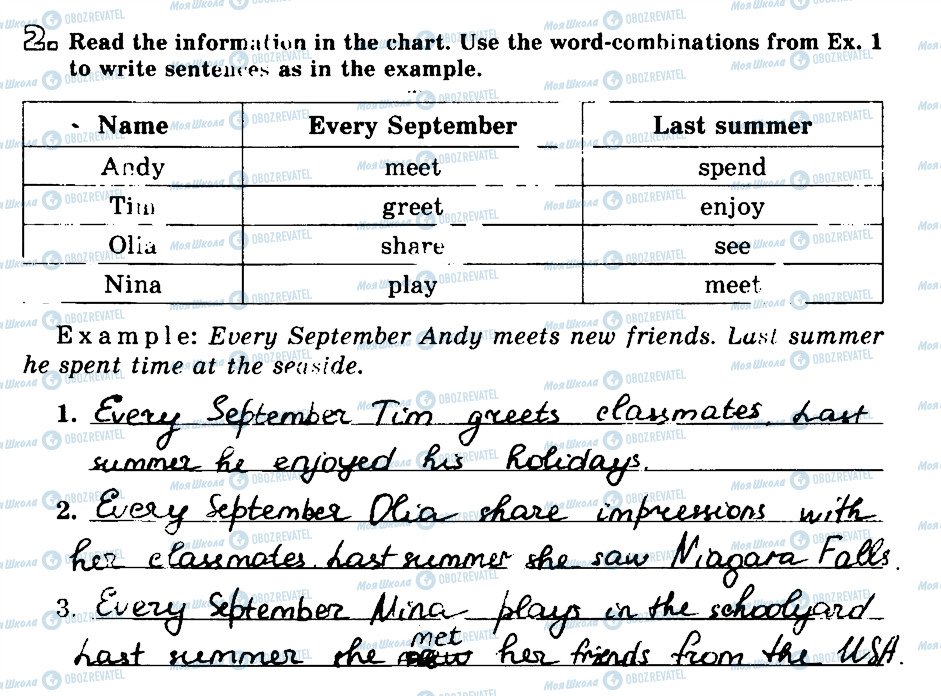 2. Read the information in the chart. Use the word-combinations from Ex. 1
to write sentences as in the example.
Name Every September Last summer
Andy meet spend
Tim greet enjoy
Olia share see
Nina play meet
Example: Every September Andy meets new friends. Last summer
he spent time at the seaside.
1. Every September Tim greets classmates. Last
summer he enjoyed his holidays.
2. Every September Olia share impressions with
her classmates. Last summer she saw Niagara Falls.
3. Every September Nina plays in the schoolyard
Last summer she met her friends from the USA.
Моя Школа OBOZREVATEL